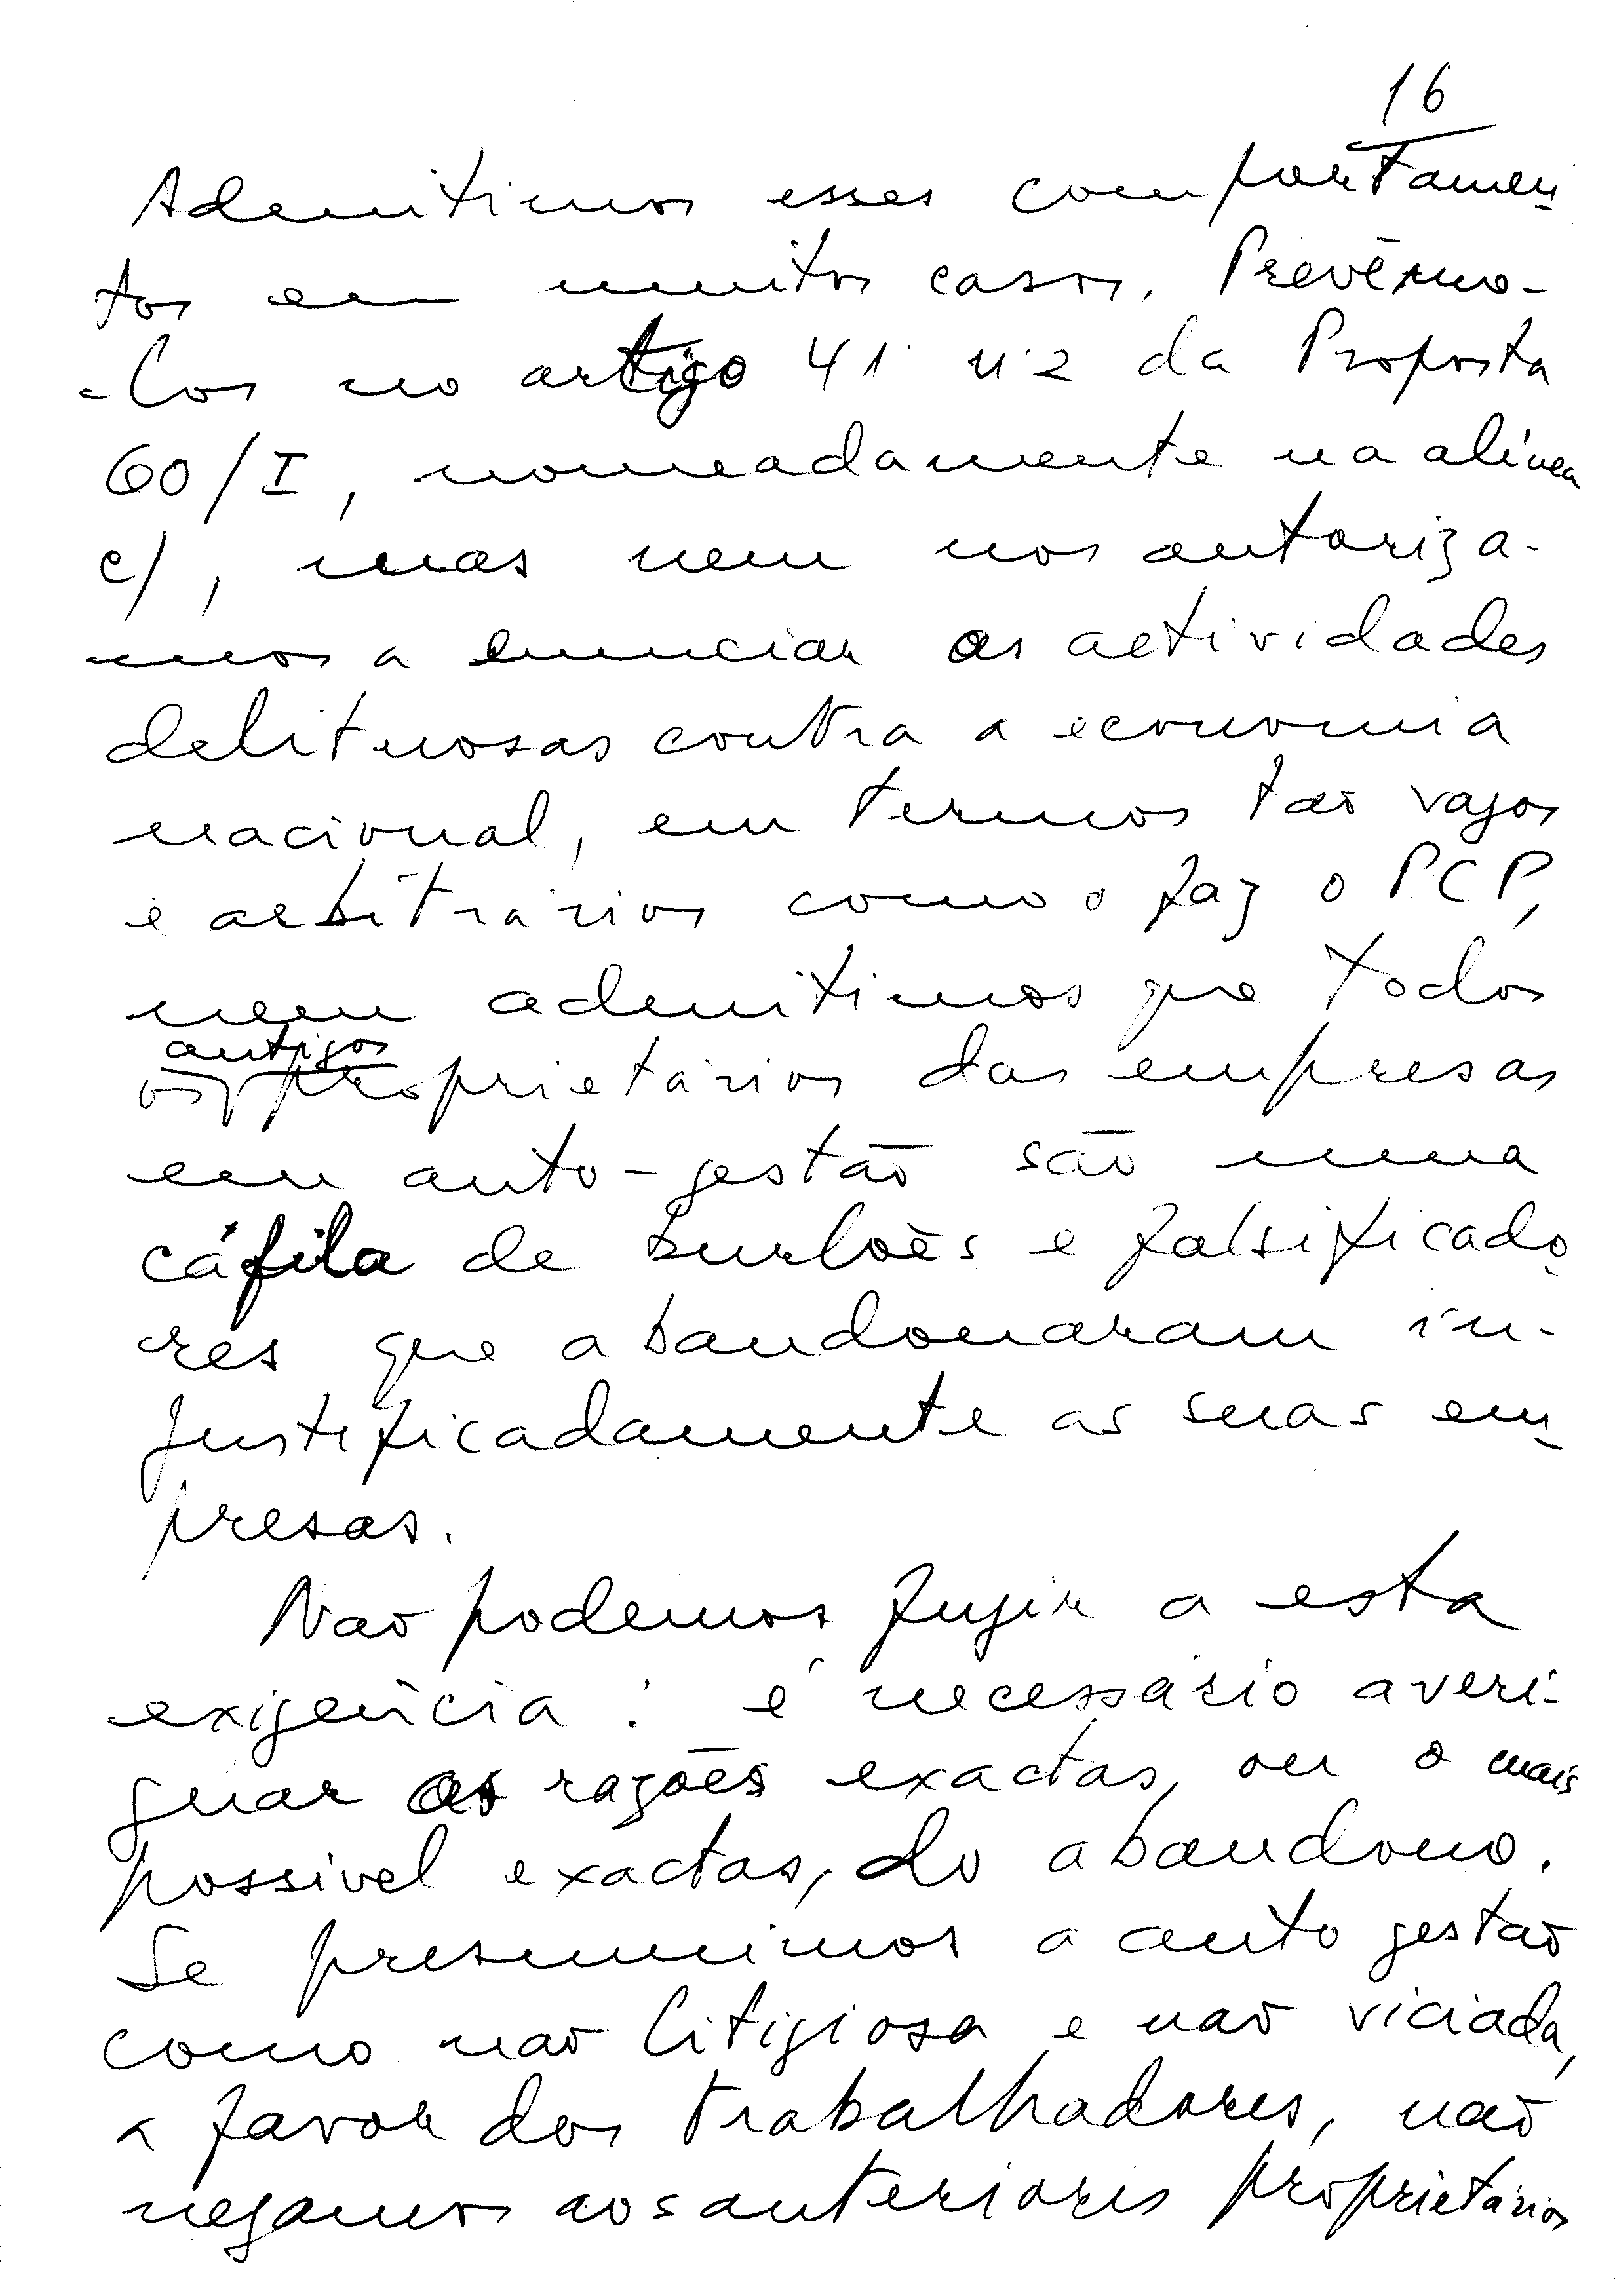 16
Admitimos esses comportamen-
tos em muitos casos. Prevêmo-
-los no artigo 41º nº2 da Proposta
60/I, nomeadamente na alínea
c), mas nem nos autoriza-
mos a enunciar as actividades
delituosas contra a economia
nacional, em termos tão vagos
e arbitrários como o faz o PCP,
nem admitimos que todos
os antigos proprietários das empresas
em auto-gestão são uma
cáfila de burlões e falsificado-
res que abandonaram in-
justificadamente as suas em-
presas.
Não podemos fugir a esta
exigência: é necessário averi-
guar as razões exactas, ou o mais
possível exactas, do abandono.
Se presumimos a auto gestão
como não litigiosa e não viciada,
a favor dos trabalhadores, não
negamos aos anteriores proprietários